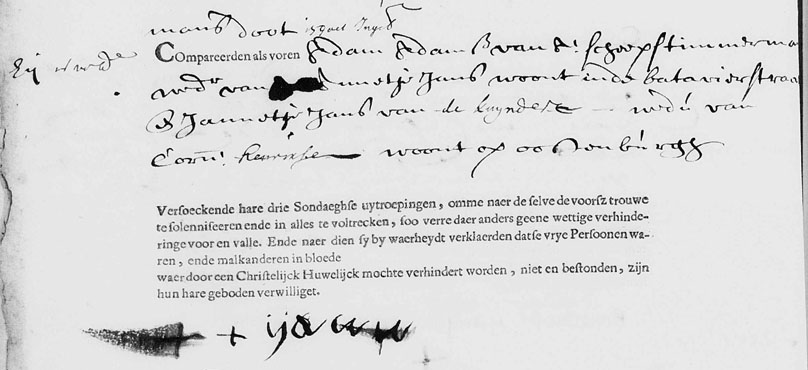 mans doot is goet Inge
COmpareerden als voren Adam Adams van A: scheepstimmerma
wedr van Annetje Jans woont inde bataviersstraat
& Jannetje Jans van de kuynder wedu van
Corn: woont op oostenburgh
Versoeckende hare drie Sondaeghse uytroepingen, omme naer de selve de voorsz trouwe
te solenniseeren ende in alles te voltrecken, soo verre daer anders geene wettige verhinde-
ringe voor en valle. Ende naer dien sy by waerheydt verklaerden datse vrye Persoonen wa-
ren, ende malkanderen in bloede
waer door een Christelijck Huwelijck mochte verhindert worden, niet en bestonden, zijn
hun hare geboden verwilliget.